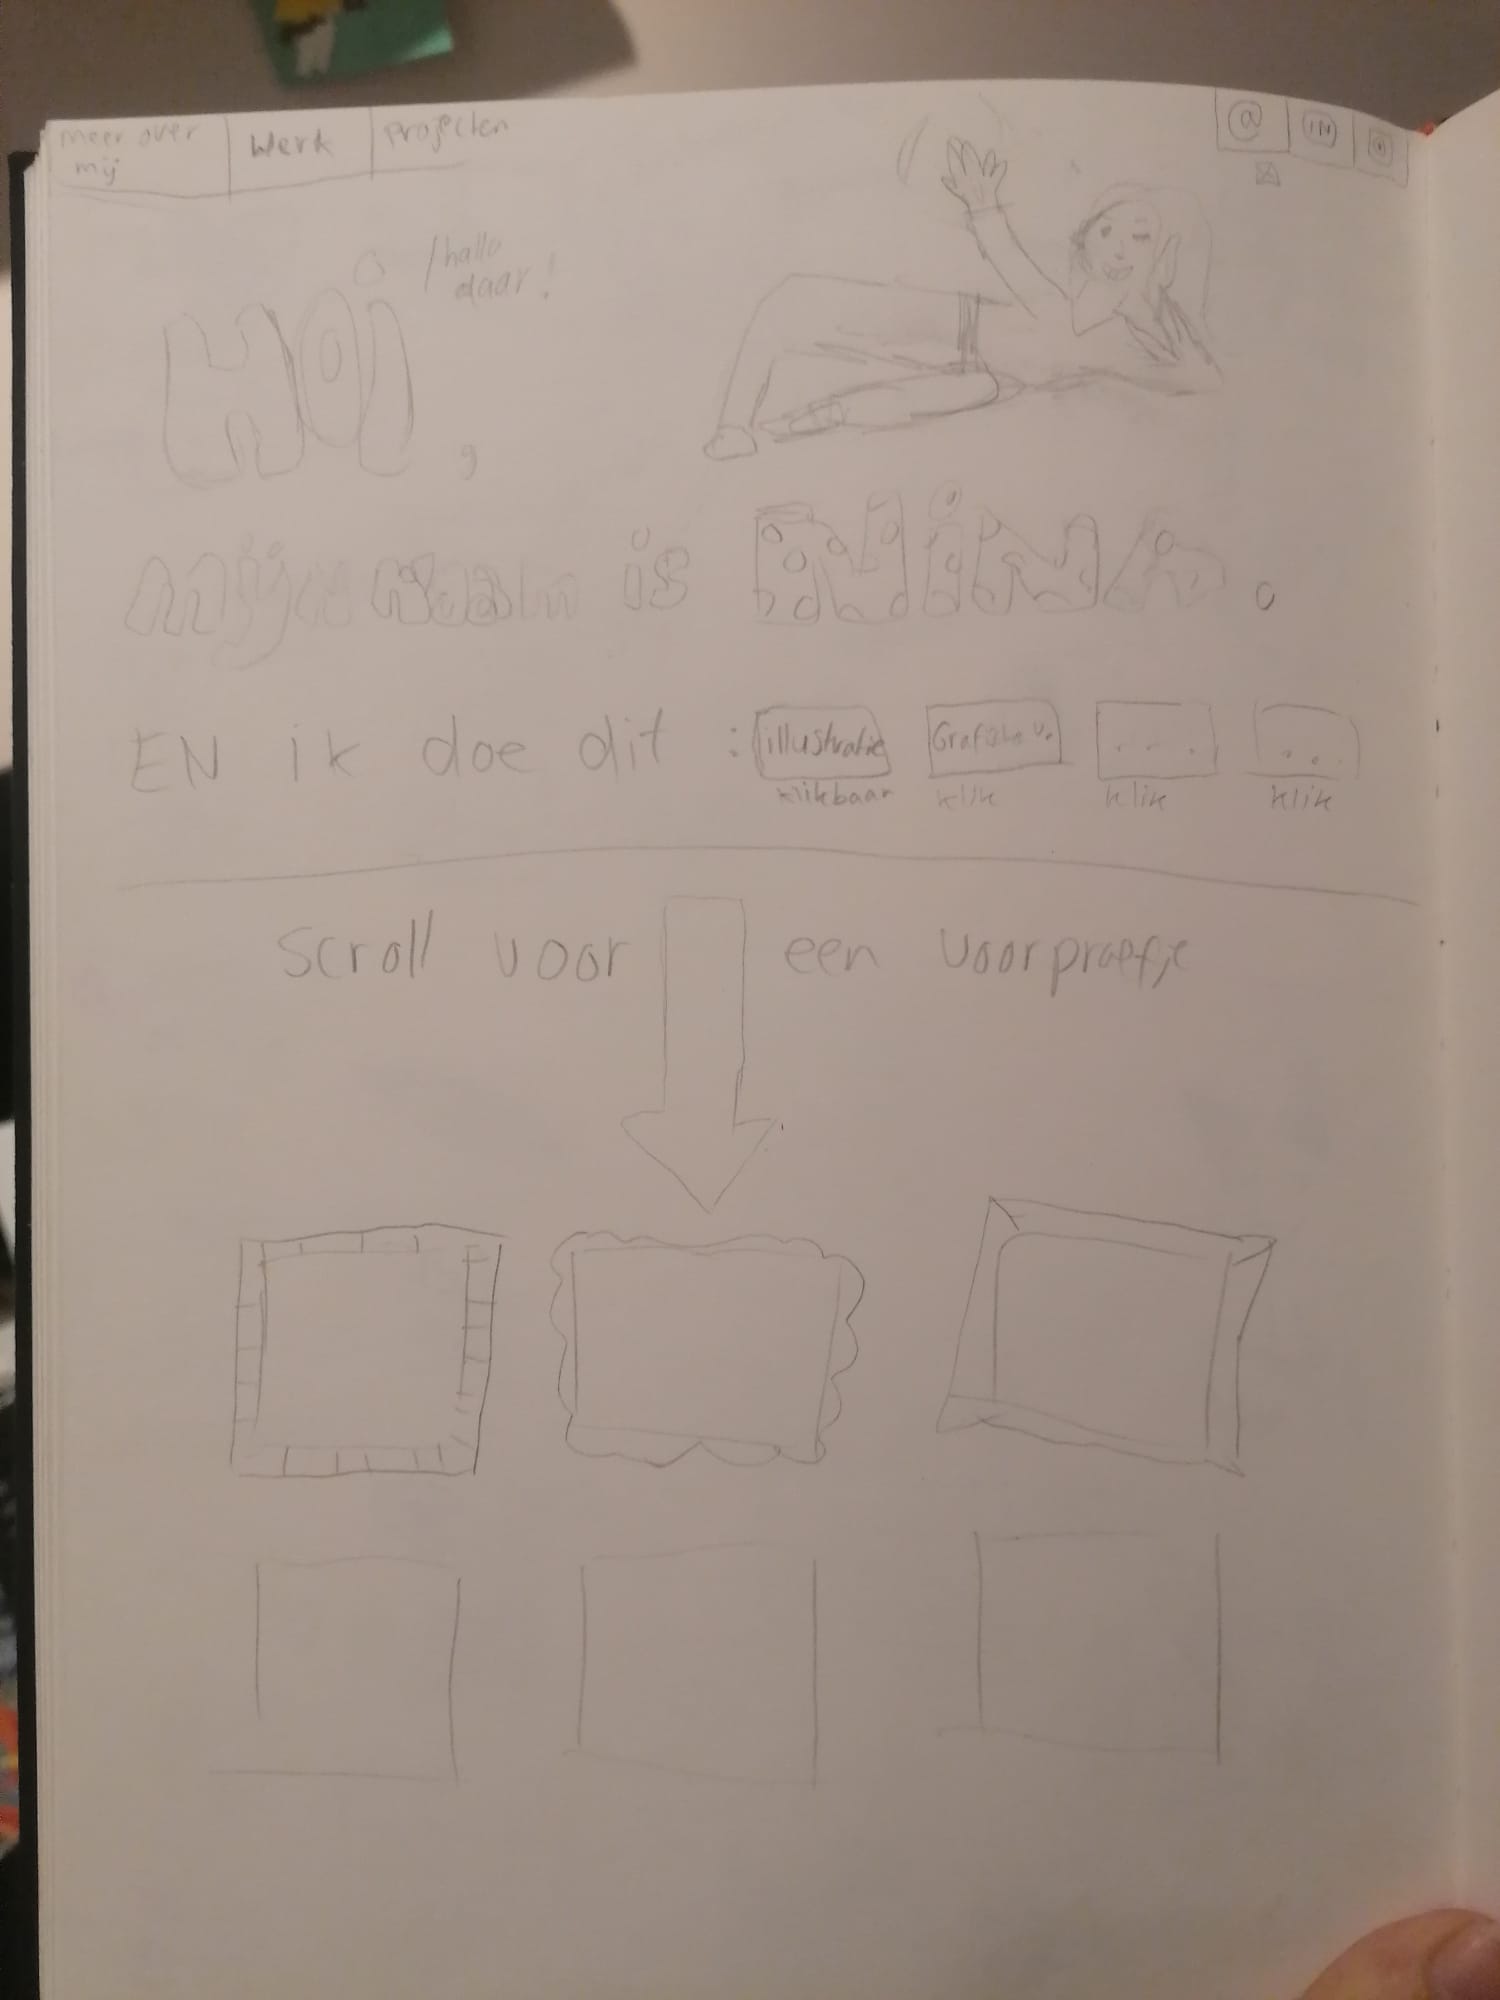 meer over
mij
Werk
projecten
@
IN
Hoi,
/hallo
daar!
mijn naam is NiNA.
EN ik doe dit : illustratie Grafische v. ... ...
klikbaar klik klik klik
scroll voor een voorproefje